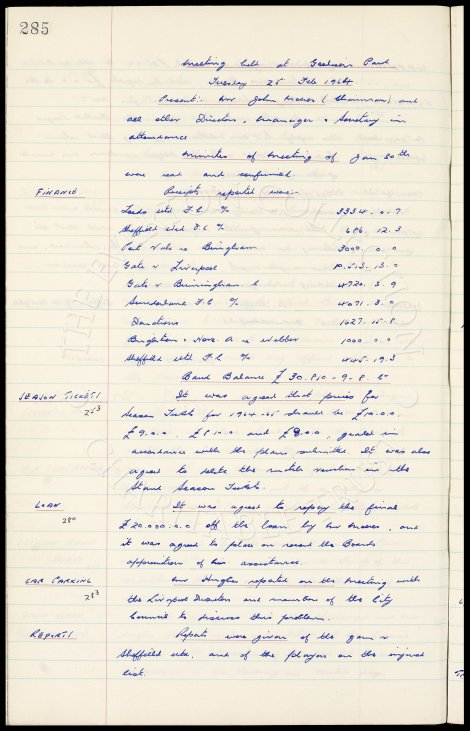 285
Meeting held at Goodison Park
Tuesday 25 Feb 1964
Present: Mr John Moores (Chairman) and
all other Directors, Manager & Secretary in
attendance
Minutes of meeting of Jan 30th
were read and confirmed
FINANCE Receipts reported were:-
Leeds Utd F.C. % 3334 . 0 . 7
Sheffield Utd F.C % 686 . 12 . 3
Port Vale re Bingham 3000 . 0 . 0
Gate v Liverpool 10,513 . 13 . 0
Gate v Birmingham C 4720 . 3 . 9
Sunderland F.C % 4071 . 3 . 0
Donations 1627 . 15 . 8
Brighton & Hove A re Webber 1000 . 0 . 0
Sheffield Utd F.C. % 445 . 19 . 3
Bank Balance £ 30,810 - 9 - 8
SEASON TICKETS It was agreed that prices for
253 Season Tickets for 1964-65 should be £10.0.0.
£9.0.0. £8.10.0 and £8.0.0, graded in
accordance with the plans submitted. It was also
agreed to delete the match vouchers in the
Stand Season Tickets.
LOAN It was agreed to repay the final
280 £20.000.0.0 off the loan by Mr Moores, and
it was agreed to place on record the Boards
appreciation of his assistance
CAR PARKING Mr Hughes reported on the meeting with
283 the Liverpool Directors and member of the City
Council to discuss this problem.
REPORTS Reports were given of the game v
Sheffield Utd. and of the players on the injured
list.
THE EVERTON COLLECTION